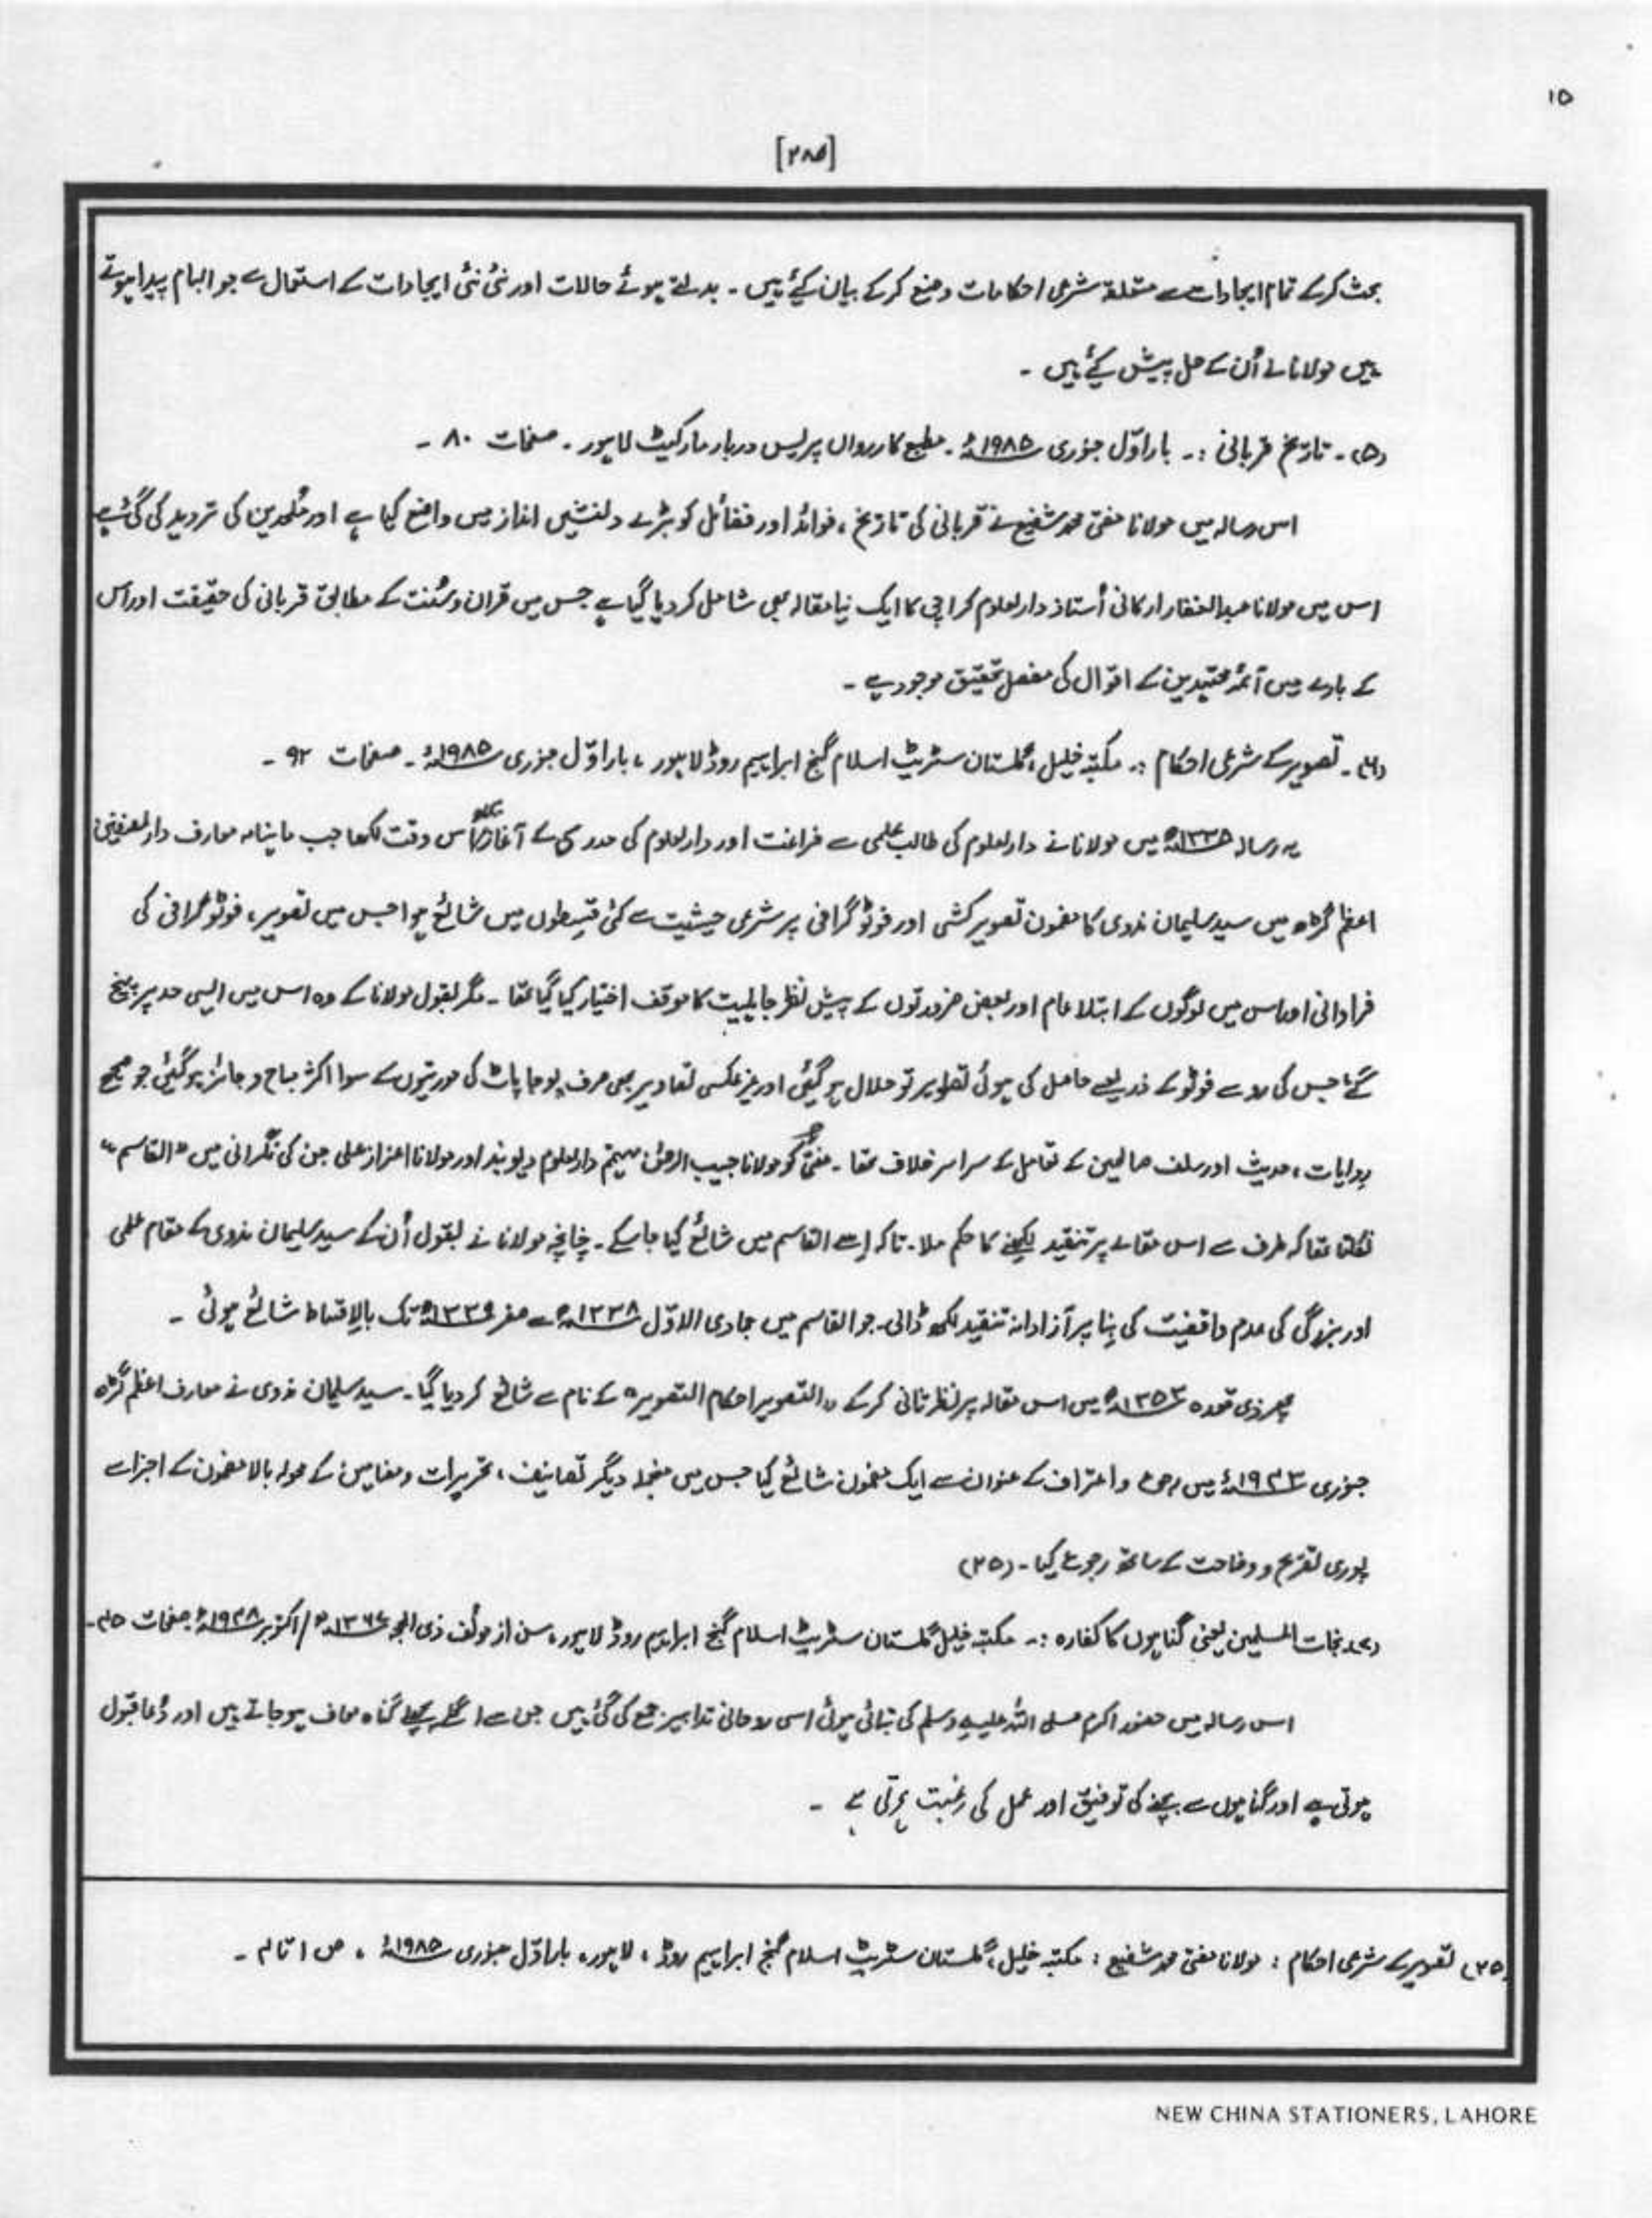 ۱۵
[۲۸۵]
بحث کرکے تمام ایجادات سے متعلقہ شرعی احکامات وضع کرکے بیان کیٔے ہیں ۔ بدلتے ہوئے حالات اور نئی نئی ایجادات کے استعمال سے جو ابہام پیدا ہوتے
ہیں مولانا نے اُن کے حل پیش کیٔے ہیں ۔
(۵)۔ تاریخ قربانی :۔ بار اوّل جنوری ۱۹۸۵ء ۔ مطبع کاررواں پریس دربار مارکیٹ لاہور ۔ صفحات ۸۰ ۔
اس رسالہ میں مولانا مفتی محمد شفیع نے قربانی کی تاریخ ، فوائد اور فضائل کو بڑے دلنشیں انداز میں واضح کیا ہے اور مُلحدین کی تردید کی گئی ہے
اس میں مولانا عبدالغفار ارکانی اُستاذ دارلعلوم کراچی کا ایک نیا مقالہ بھی شامل کردیا گیا ہے جس میں قران و سُنت کے مطابق قربانی کی حقیقت اور اس
کے بارے میں آئمۂ مجتہدین کے اقوال کی مفصل تحقیق موجود ہے ۔
(۶)۔ تصویر کے شرعی احکام :۔ مکتبہ خلیل ، گلستان سٹریٹ اسلام گنج ابراہیم روڈ لاہور ، بار اوّل جنوری ۱۹۸۵ء ۔ صفحات ۹۲ ۔
یہ رسالہ ۱۳۳۵ھ میں مولانا نے دارلعلوم کی طالب علمی سے فراغت اور دارلعلوم کی مدرسی کے آغاز اس وقت لکھا جب ماہنامہ معارف دارلمصنفین
اعظم گڑھ میں سید سلیمان ندوی کا مضمون تصویر کشی اور فوٹو گرافی پر شرعی حیثیت سے کئی قسطوں میں شائع ہوا جس میں تصویر ، فوٹو گرافی کی
فراوانی اور اس میں لوگوں کے ابتلا عام اور بعض ضرورتوں کے پیش نظر کا موقف اختیار کیا گیا تھا ۔ مگر بقول مولانا کے وہ اس میں ایسی حد پر پہنچ
گئے جس کی رو سے فوٹو کے ذریعے حاصل کی ہوئی تصاویر تو حلال ہو گئیں اور غیر عکسی تصاویر بھی صرف پوجا پاٹ کی مورتیوں کے سوا اکثر مباح و جائز ہو گئیں جو صحیح
روایات ، حدیث اور سلف صالحین کے تعامل کے سراسر خلاف تھا ۔ مفتی کو مولانا حبیب الرحمٰن مہتمم دارلعلوم دیوبند اور مولانا اعزاز علی جن کی نگرانی میں "القاسم"
نکلتا تھا کہ طرف سے اس مقالے پر تنقید لکھنے کا حکم ملا ۔ تاکہ اِسے القاسم میں شائع کیا جا سکے ۔ چنانچہ مولانا نے بقول اُن کے سید سلیمان ندوی کے مقام علمی
اور بزرگی کی عدم واقفیت کی بِنا پر آزادانہ تنقید لکھ ڈالی ۔ جو القاسم میں جمادی الاوّل ۱۳۳۸ھ سے صفر ۱۳۳۹ھ تک بالاقساط شائع ہوئی ۔
پھر ذی قعدہ ۱۳۵۳ھ میں اس مقالہ پر نظر ثانی کرکے "التصویر احکام التصویر" کے نام سے شائع کردیا گیا ۔ سید سلیمان ندوی نے معارف اعظم گڑھ
جنوری ۱۹۴۳ء میں و اعتراف کے عنوان سے ایک مضمون شائع کیا جس میں منجملہ دیگر تصانیف ، تحریرات و مضامین کے محولہ بالا مضمون کے اجزا سے
پوری تصریح و وضاحت کے ساتھ رجوع کیا ۔ (۲۵)
(۷)۔ نجات المسلمین یعنی گناہوں کا کفارہ :۔ مکتبہ خلیل گلستان سٹریٹ اسلام گنج ابراہیم روڈ لاہور ، سن از مولف ذی الحجہ / اکتوبر ۱۹۴۸ء صفحات
اس رسالہ میں حضور اکرم صلی اللہ علیہ وسلم کی بتائی ہوئی اسی روحانی تدابیر جمع کی گئی ہیں جن سے اگلے پچھلے گناہ معاف ہو جاتے ہیں اور دُعا قبول
ہوتی ہے اور گناہوں سے بچنے کی توفیق اور عمل کی رغبت ہے ۔
(۲۵) تصویر کے شرعی احکام : مولانا مفتی محمد شفیع : مکتبہ خلیل ، گلستان سٹریٹ اسلام گنج ابراہیم روڈ ، لاہور ، بار اوّل جنوری ۱۹۸۵ء ، ص ۱ تا ۴ ۔
NEW CHINA STATIONERS, LAHORE